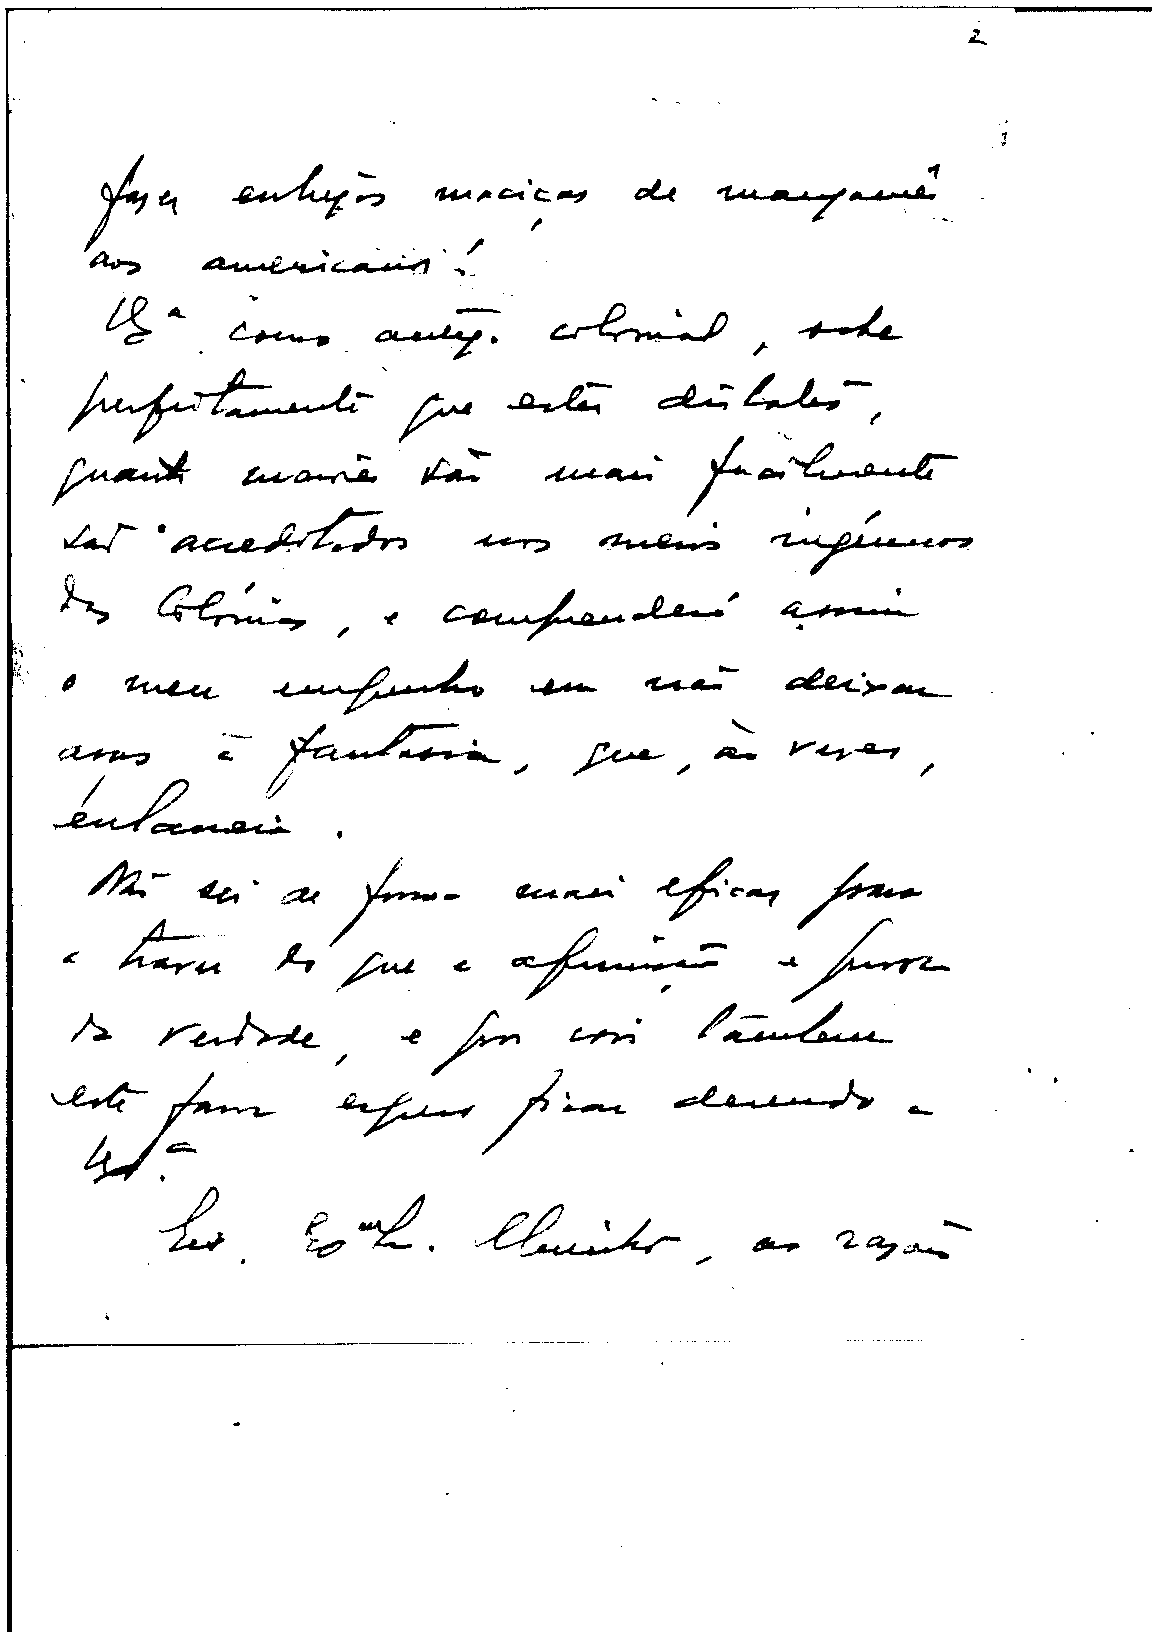 2
fazer entregas maciças de manganês
aos americanos!
V. Exª como antigo colonial, sabe
perfeitamente que estes dislates,
quanto maiores são mais facilmente
são acreditados nos meios ingénuos
das Colónias, e compreenderá assim
o meu empenho em não deixar
asas à fantasia, que, às vezes,
Não sei de forma mais eficaz para
a travar do que a afirmação e prova
da verdade, e por isso também
este favor espero ficar devendo a
V. Exª
Eis, Exmo Sr. Ministro, as razões